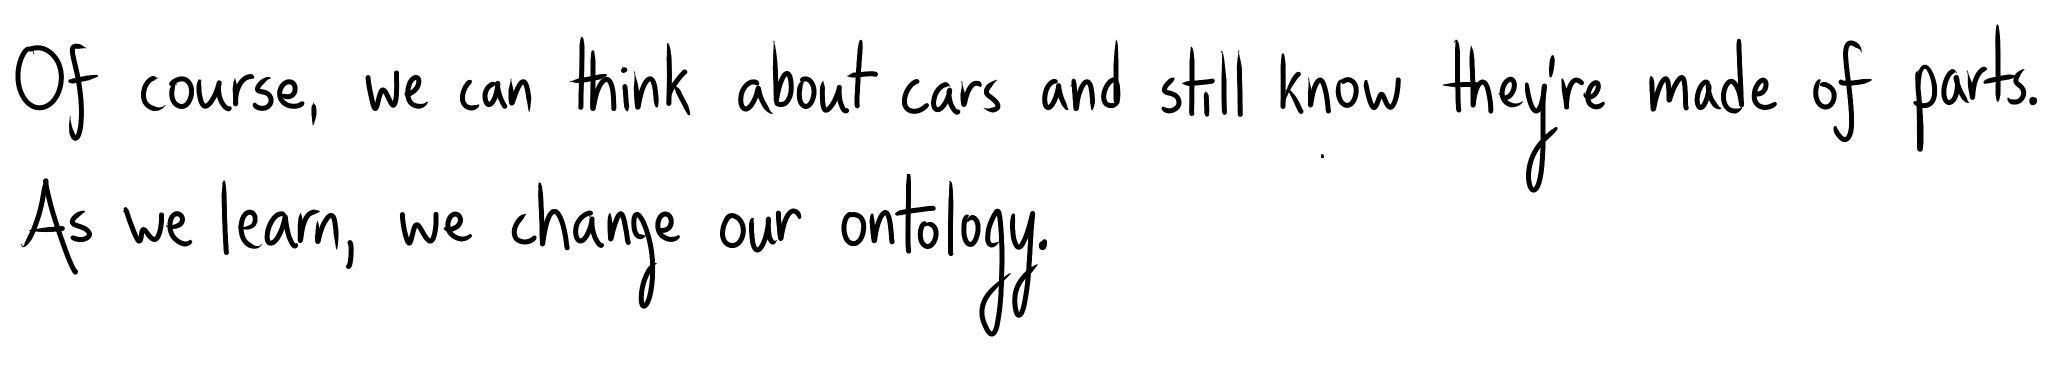 Of course, we can think about cars and still know they're made of parts.
As we learn, we change our ontology.